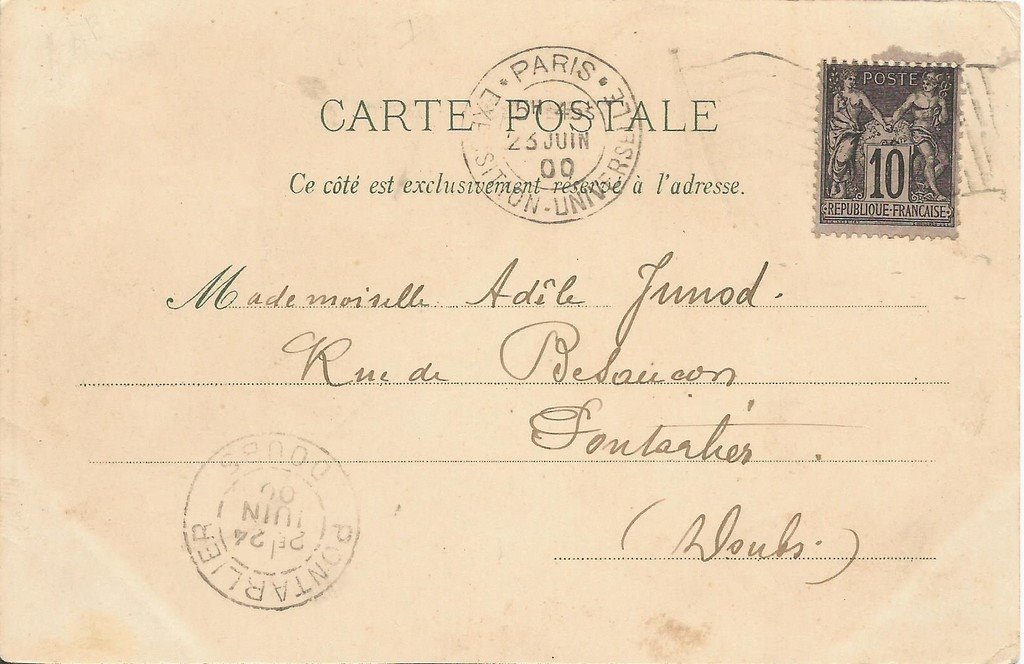 CARTE POSTALE
Ce côté est exclusivement réservé à l'adresse.
PARIS
EXPOSITION-UNIVERSELLE
23 JUIN
00
POSTE
10
REPUBLIQUE·FRANÇAISE
Mademoiselle Adèle Junod.
Rue de Besançon
Pontarlier.
(Doubs.)
PONTARLIER
24
JUIN
00
DOUBS